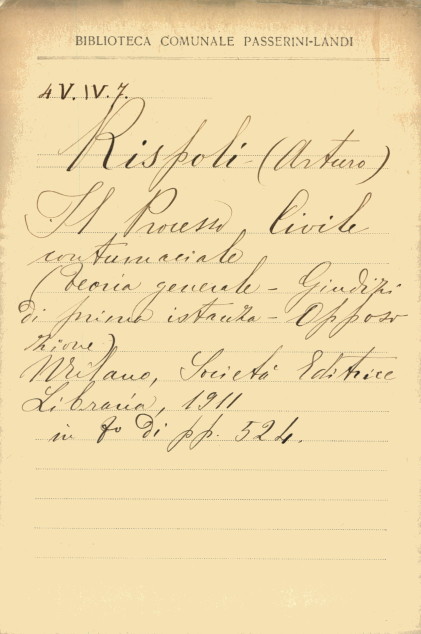 BIBLIOTECA COMUNALE PASSERINI-LANDI
4V.IV.7.
Rispoli (Arturo)
Il Processo Civile
contumaciale
(teoria generale - Giudizi
di prima istanza - Opposi
zione)
Milano, Società Editrice
Libraria, 1911
in 8o di pp. 524.